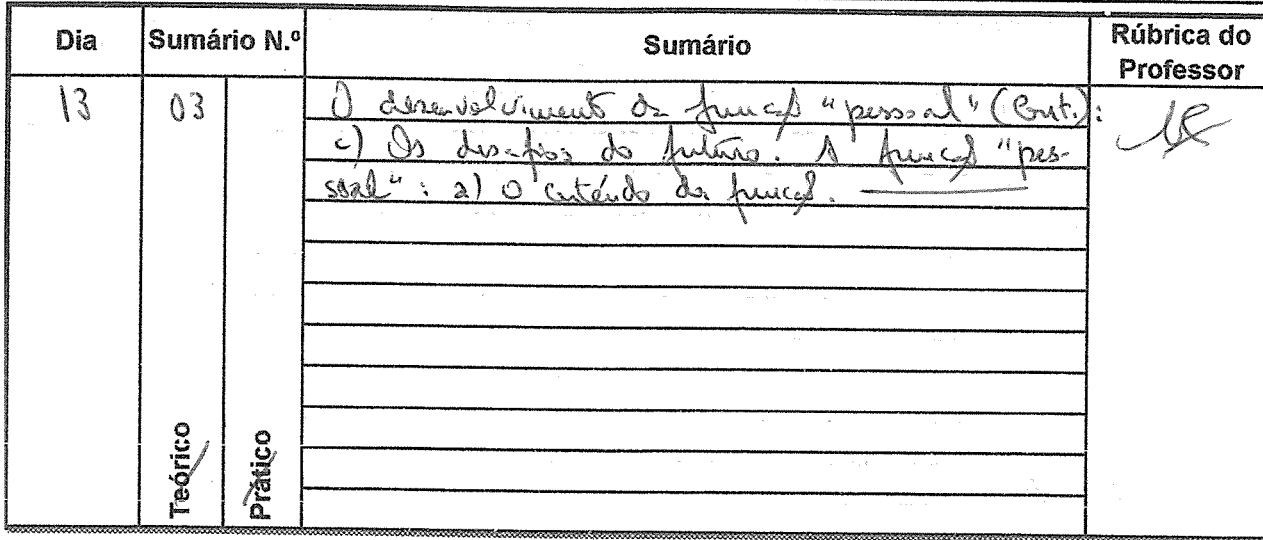 Dia
Sumário N.º
Sumário
Rúbrica do
Professor
13
03
O desenvolvimento da função "pessoal" (Cont.):
c) Os desafios do futuro. A função "pes-
soal": a) O conteúdo da função.
Teórico
Prático